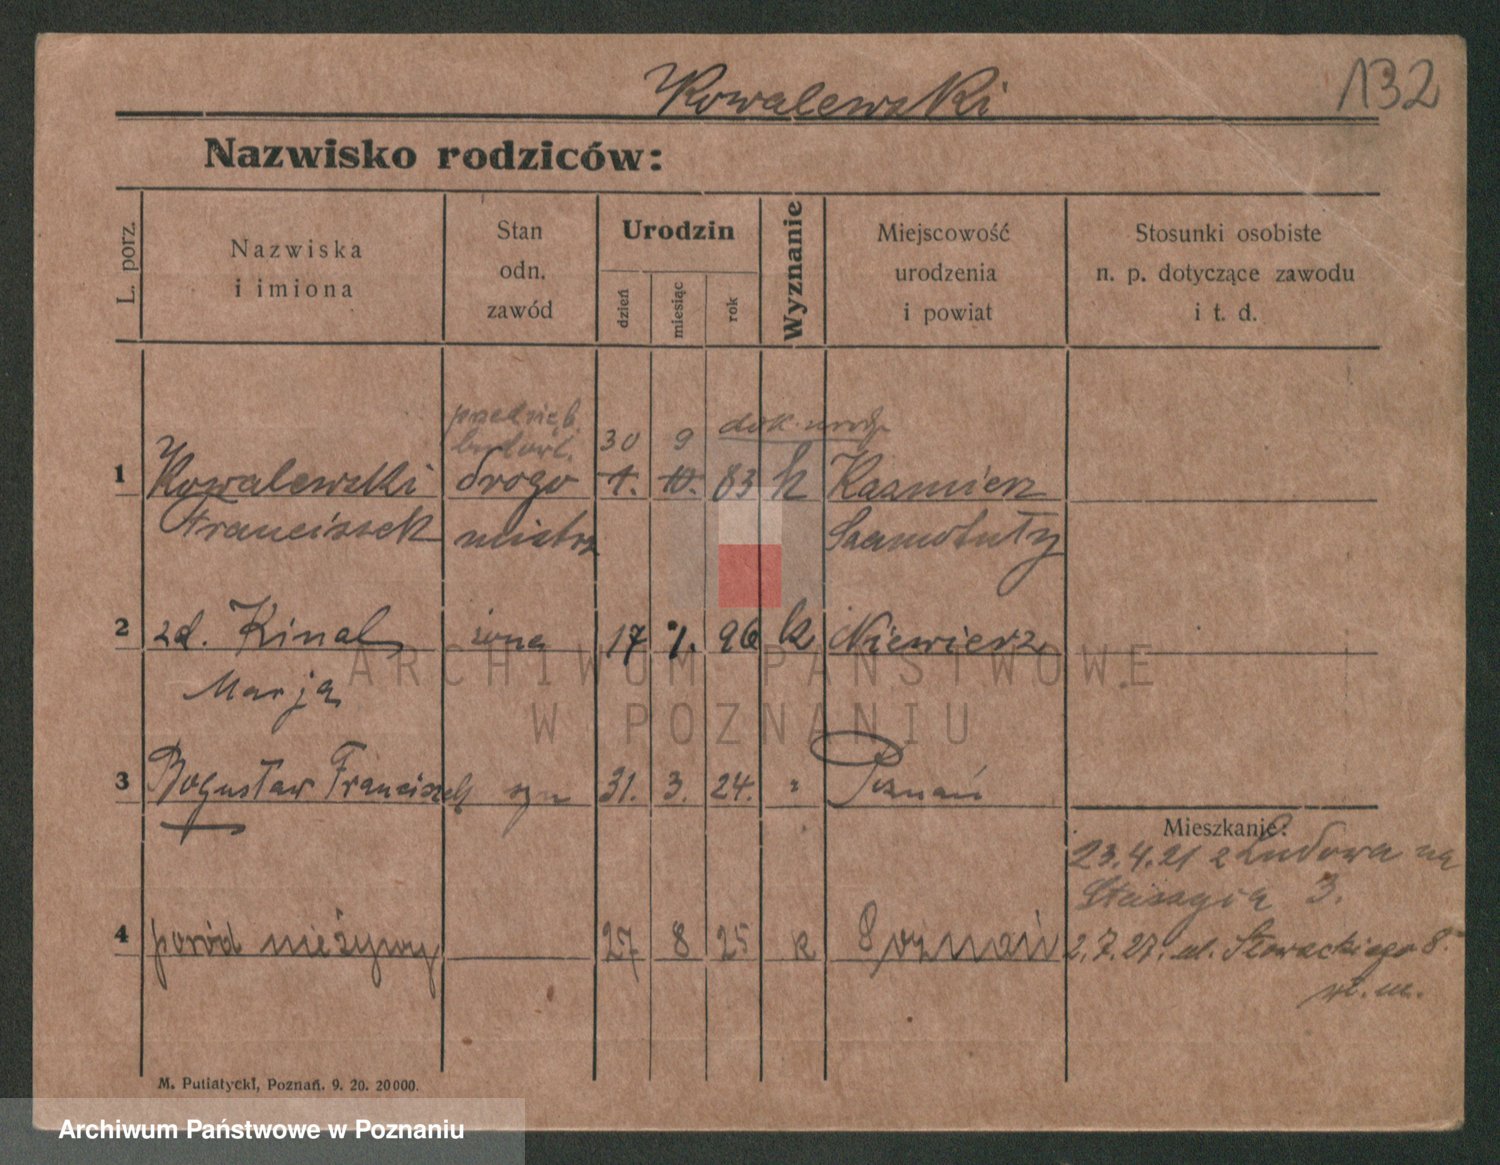 Kowalewski
132
Nazwisko rodziców:
L. porz.
Nazwiska
i imiona
Stan
odn.
zawód
Urodzin
dzień
miesiąc
rok
Wyznanie
Miejscowość
urodzenia
i powiat
Stosunki osobiste
n. p. dotyczące zawodu
i t. d.
przedsięb.
30 9 dok. urodz.
1 Kowalewski drogo 1. 10. 83 k Kazmierz
Franciszek mistrz Szamotuły
2 zd. Kinal żona 17 1. 96 k Niewierz
Marja
3 Bogusław Franciszek syn 31. 3. 24. " Poznań
Mieszkanie:
23.4.21 z Ludowa na
Staszyca 3.
4 poród nieżywy 27 8 25 k Poznań
2.7.27. ul. Słowackiego 8.
M. Putiatycki, Poznań. 9. 20. 20000.
ARCHIWUM PAŃSTWOWE
W POZNANIU
Archiwum Państwowe w Poznaniu